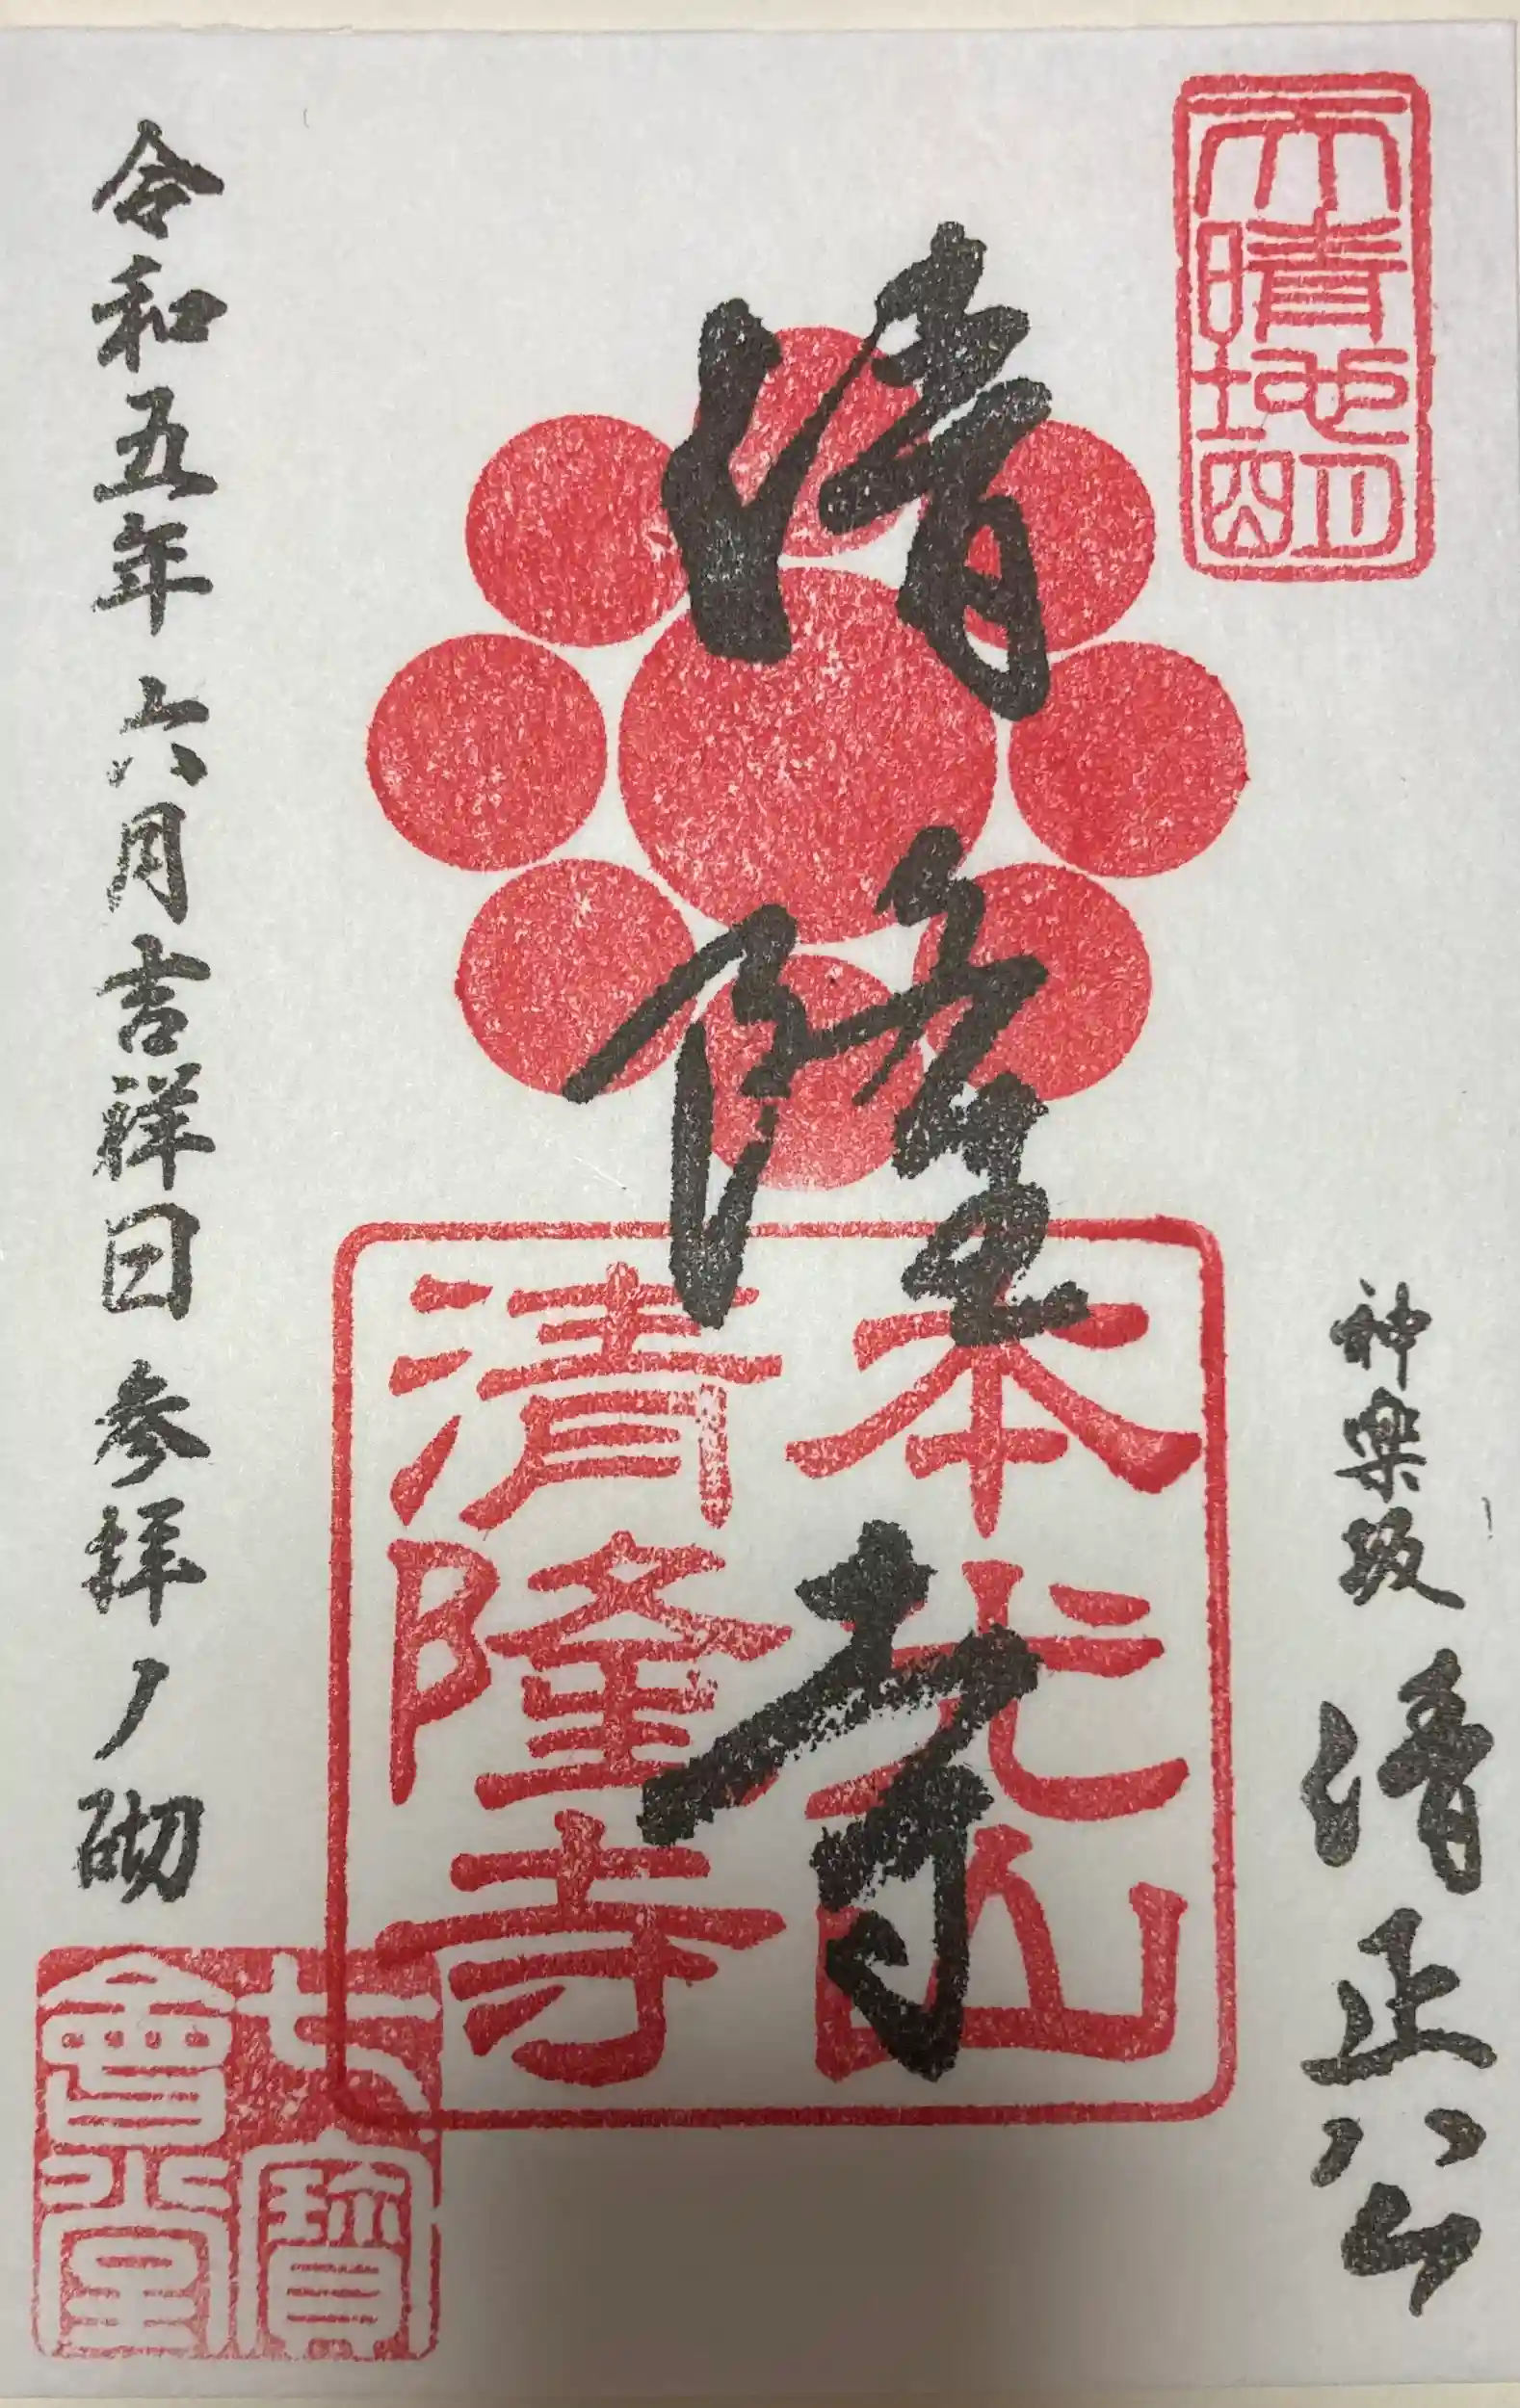 天晴地明
神楽坂 清正公
清隆寺
本光山
清隆寺
令和五年 六月吉祥日 参拝ノ砌
七寶
會堂